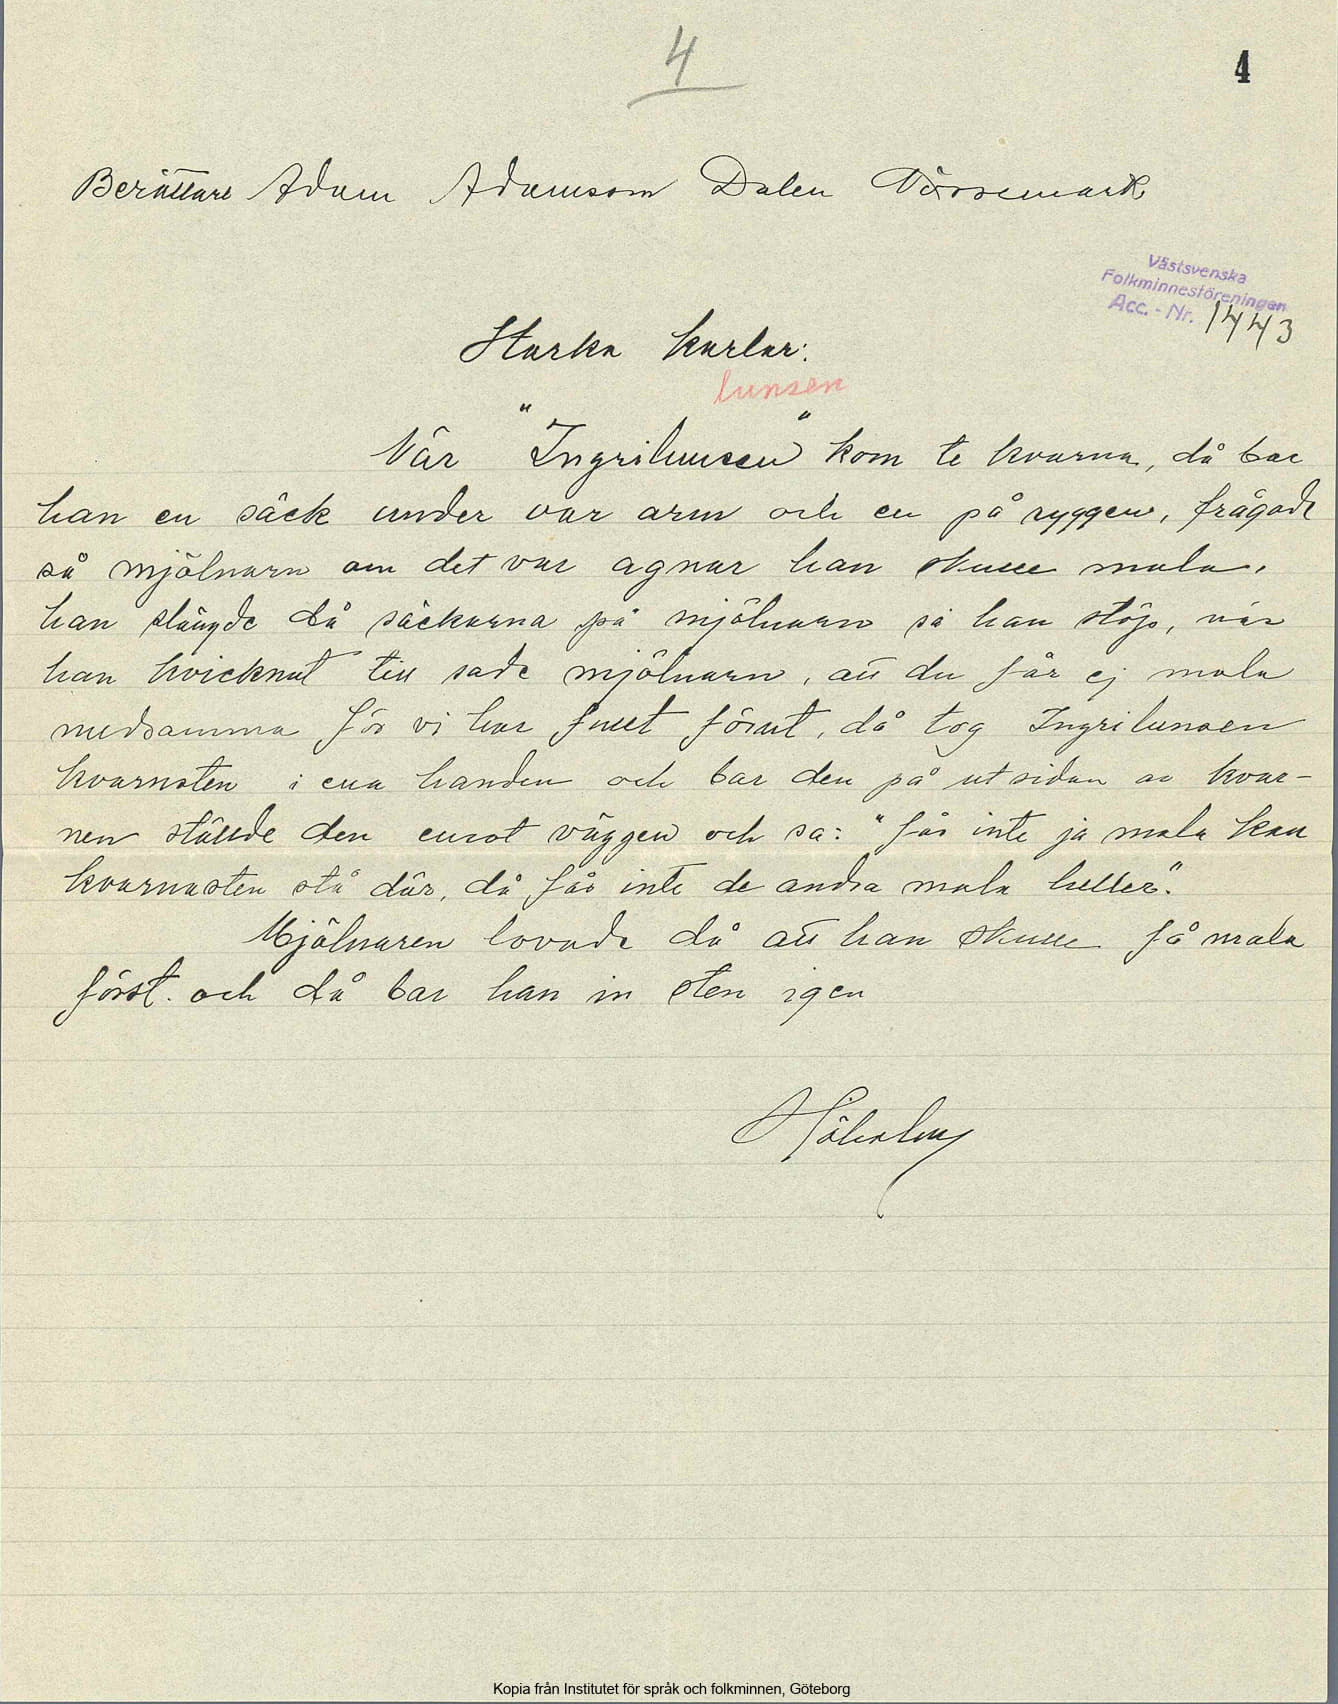 4
4
Berättare Adam Adamsson Dalen Nössemark
Västsvenska
Folkminnesföreningen
Acc. - Nr. 1443
Starka karlar:
lunsen
När "Ingrilunsen" kom te kvarna, då bar
han en säck under var arm och en på ryggen, frågade
så mjölnarn om det var agnar han skulle mala.
han slängde då säckarna på mjölnarn så han stöp, när
han kvicknat till sade mjölnarn, att du får ej mala
medsamma för vi har fullt förut, då tog Ingrilunsen
kvarnsten i ena handen och bar den på utsidan av kvar-
nen ställde den emot väggen och sa: "får inte ja mala kan
kvarnasten stå där, då får inte de andra mala heller".
Mjölnaren lovade då att han skulle få mala
först. och då bar han in sten igen
Kopia från Institutet för språk och folkminnen, Göteborg